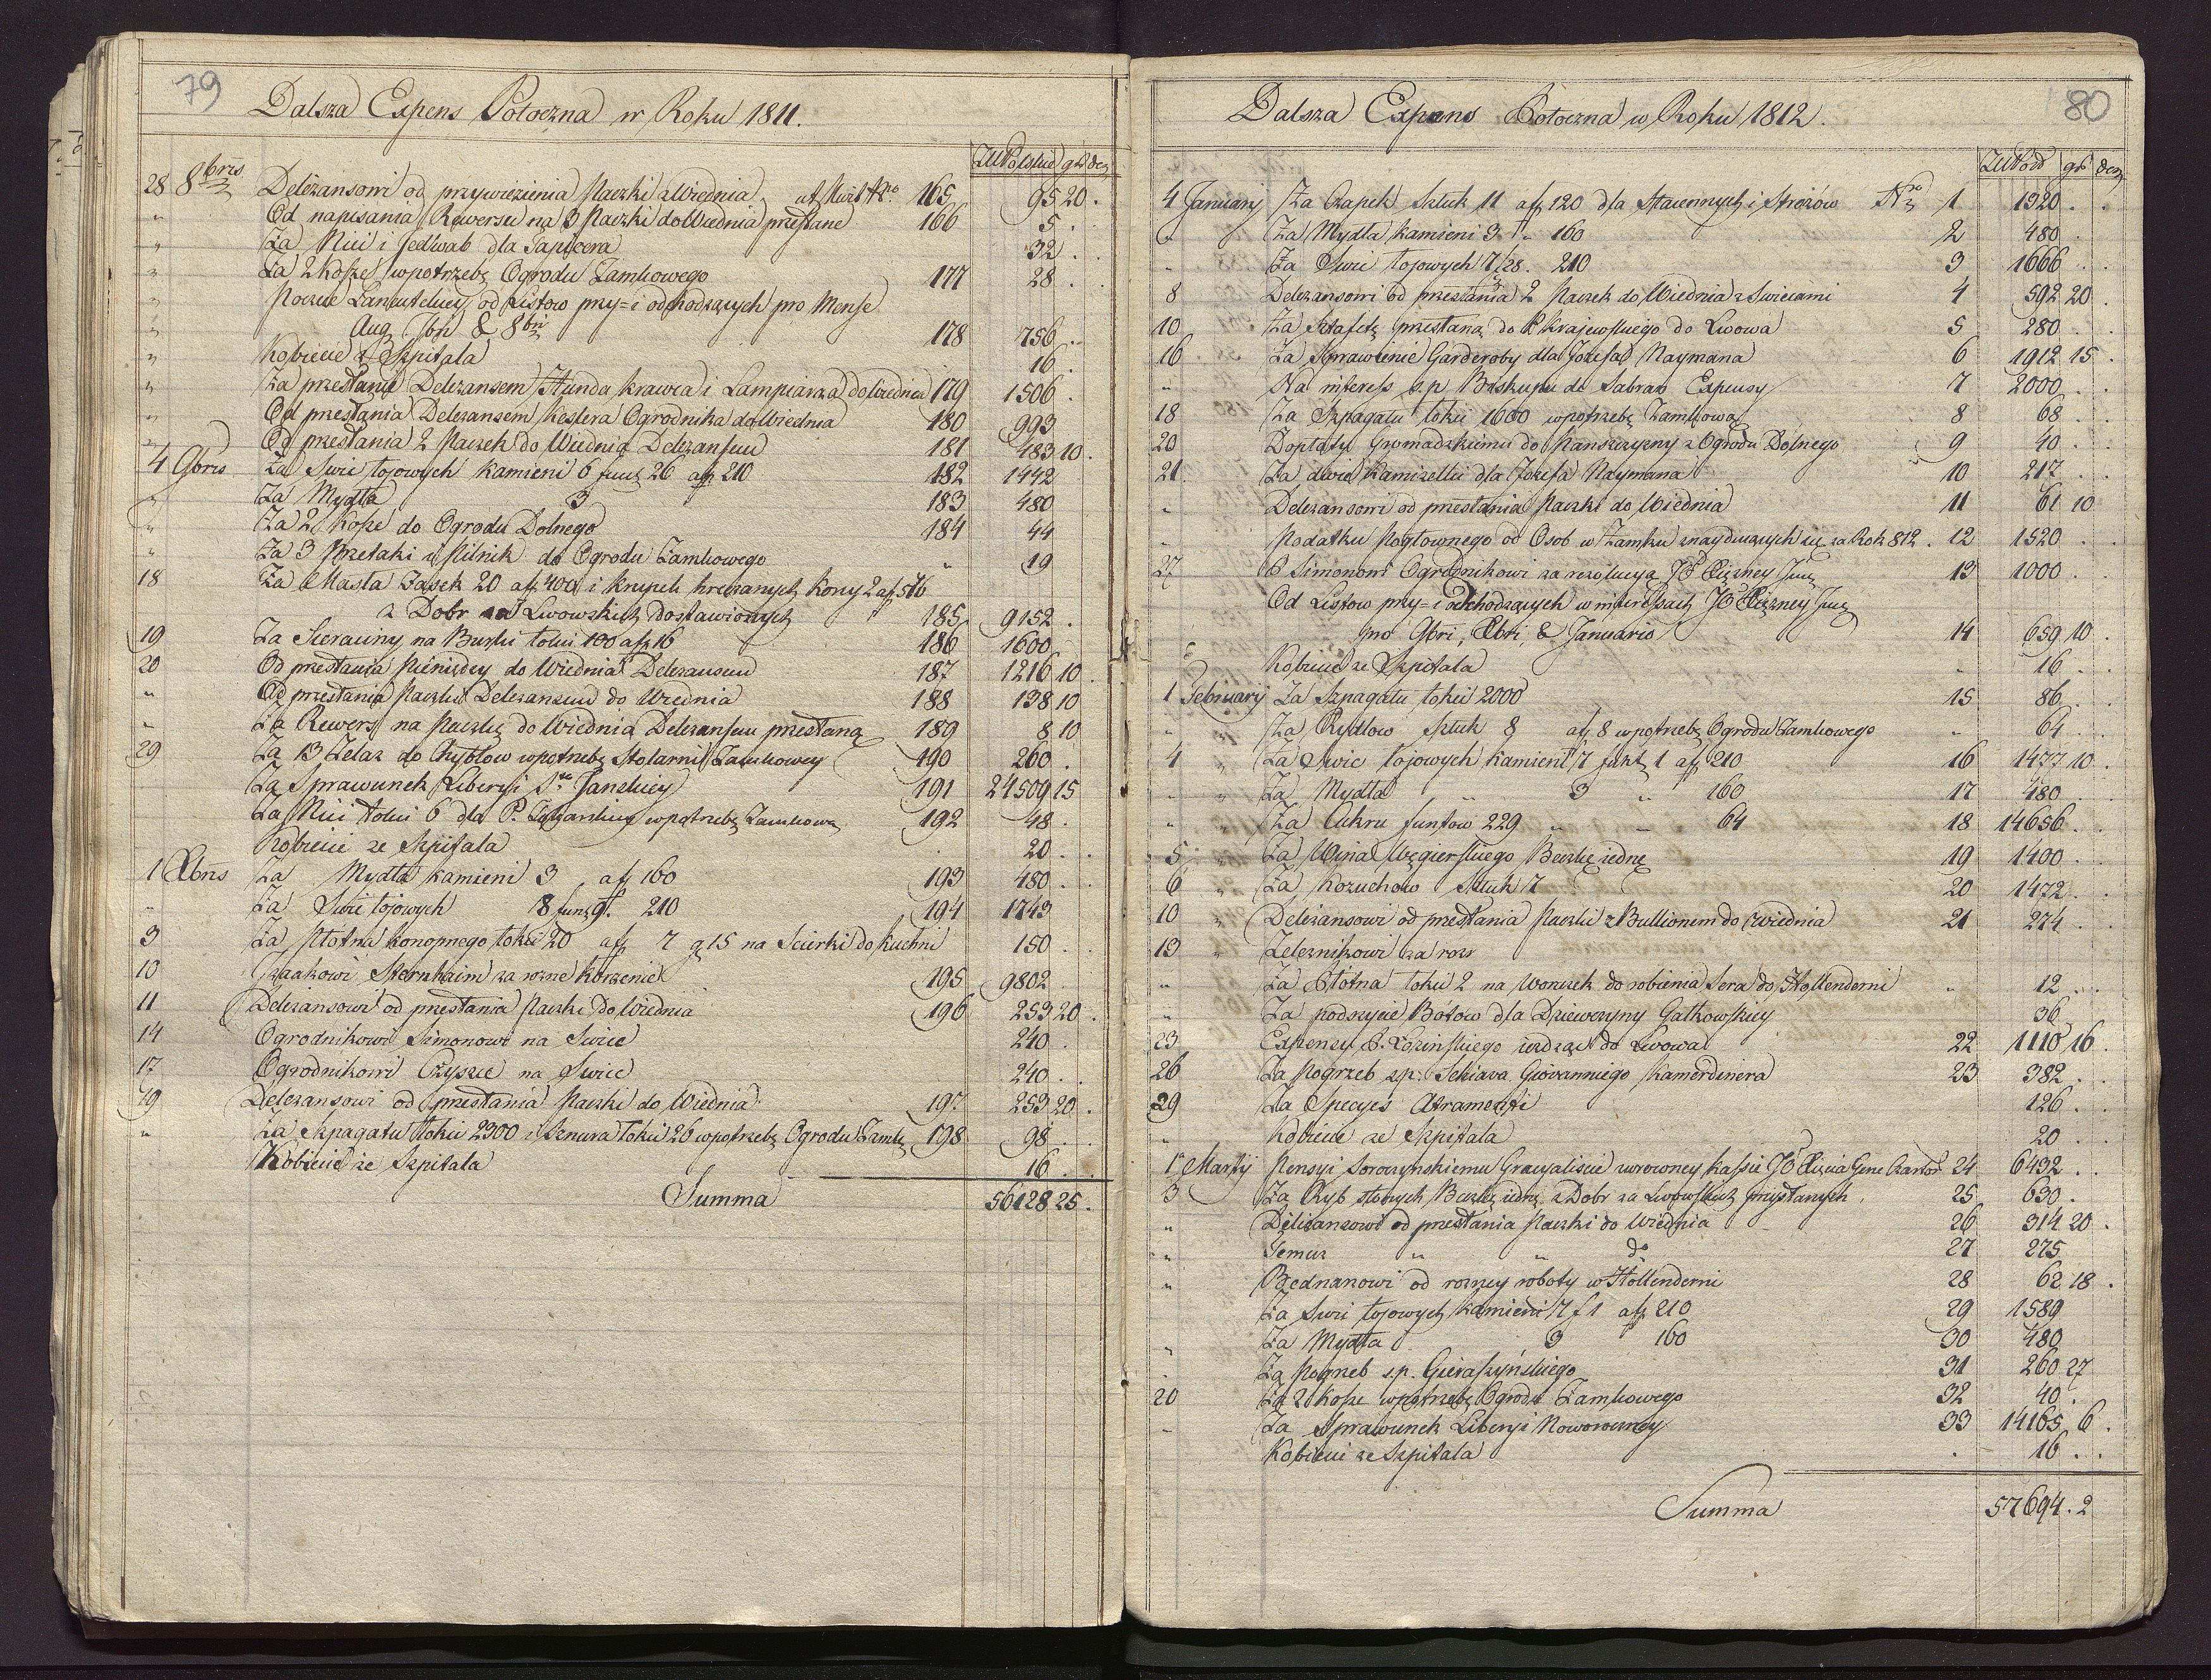 79
Dalsza Expens Potoczna w Roku 1811.
ZłłPolskie gr den
28 8bris Deliżansowi od przywiezienia Paczki z Wiednia ut Kwit Nro 165 95 20 .
" Od napisania Rewersu na 3 Paczki do Wiednia przesłane 166 5 .
" Za Nici i Jedwab dla Tapicera 32 . .
" Za 2 Kosze w potrzebę Ogrodu Zamkowego 177 28 .
" Poczcie Łancutskiey od Listow przy= i odchodzących pro Mense
" Aug 7bri & 8bri 178 756 . .
" Kobiecie z Szpitala 16 .
" Za przesłanie Deliżansem Stunda Krawca i Lampiarza do Wiednia 179 1506 .
" Od przesłania Deliżansem Keslera Ogrodnika do Wiednia 180 993
" Od przesłania 2 Paczek do Wiednia Deliżansem 181 483 10 .
4 9bris Za Swic łojowych Kamieni 6 funt 26 aff 210 182 1442
" Za Mydła 3 183 480
" Za 2 Kosze do Ogrodu Dolnego 184 44
" Za 3 Przetaki i Pilnik do Ogrodu Zamkowego " 19
18 Za Masła Fasek 20 aff 400 i Krupek hreczanych Korcy 2 aff 576
z Dobr za Lwowskich dostawionych 185 9152 .
19 Za Sierauny na Burki łokci 100 aff 16 186 1600
20 Od przesłania Pieniędzy do Wiednia Deliżansem 187 1216 10 .
" Od przesłania Paczki Deliżansem do Wiednia 188 138 10
" Za Rewers na Paczkę do Wiednia Deliżansem przesłaną 189 8 10
29 Za 13 Żelaz do Hyblow w potrzebę Stolarni Zamkowey 190 260 .
Za Sprawunek Liberyi Sto Janskiey 191 24509 15
Za Nici łokci 6 dla P. w potrzebę Zamkową 192 48 .
Kobiecie ze Szpitala 20 . .
1 Xbris Za Mydła Kamieni 3 aff 160 193 480 . .
" Za Swic łojowych 8 funt 9. 210 194 1743
3 Za Płotna konopnego łokci 20 aff 7 g 15 na Scierki do Kuchni 150 .
10 Izaakowi Sternhaim za rozne Korzenie 195 9802 .
11 Deliżansowi od przesłania Paczki do Wiednia 196 253 20 .
14 Ogrodnikowi Simonowi na Swice 240 .
17 Ogrodnikowi Czyszce na Swice 240 . .
19 Deliżansowi od przesłania Paczki do Wiednia 197 253 20 .
" Za Szpagatu łokci 2300 i Sznura łokci 26 w potrzebę Ogrodu Zamk 198 98 .
Kobiecie ze Szpitala 16 . .
Summa 56128 25 .
80
Dalsza Expens Potoczna w Roku 1812.
ZłłPod gr den
4 Januarij Za Czapek Sztuk 11 aff 120 dla Staiennych i Strożow Nro 1 1320 . .
" Za Mydła kamieni 3 " 160 2 480 .
" Za Swic łojowych 7/28. 210 3 1666 . .
8 Deliżansowi od przesłania 2 Paczek do Wiednia z Swiecami 4 592 20 .
10 Za Sztafetę przesłaną do P Krajewskiego do Lwowa 5 280 . .
16 Za Sprawienie Garderoby dla Jozefa Naymana 6 1912 15 .
" Na interess s.p Biskupa de Sabran Expensy 7 2000 . .
18 Za Szpagatu łokci 1600 w potrzebę Zamkową 8 68 . .
20 Dopłaty Gromadzkiemu do Panszczyzny z Ogrodu Dolnego 9 40 . .
21. Za dwie Kamizelki dla Jozefa Naymana 10 217 . .
" Deliżansowi od przesłania Paczki do Wiednia 11 61 10
" Podatku Pogłownego od Osob w Zamku znayduiących się za Rok 812. 12 1520 . .
27 P Simonowi Ogrodnikowi za rezolucyą JO Xiężney Jmci 13 1000 . .
Od Listow przy= i odchodzących w interessach JO Xiężney Jmci
pro 9bri, Xbri, & Januario 14 659 10 .
" Kobiecie ze Szpitala " 16 .
1 Februarij Za Szpagatu łokci 2000 15 86 . .
" Za Rydlow Sztuk 8 aff 8 w potrzebę Ogrodu Zamkowego " 64 . .
4 " Za Swic łojowych Kamieni 7 funt 1 aff 210 16 1477 10 .
" " Za Mydła " 3 " 160 17 480 . .
" " Za Cukru funtow 229 " " 64 18 14656 . .
5 " Za Wina Węgierskiego Beczkę iednę 19 1400 . .
6 " Za Kozuchow Sztuk 7 20 1472 . .
10 " Deliżansowi od przesłania Paczki z Bullionem do Wiednia 21 274 . .
13 " Zeleznikowi za roz
" Za Płotna łokci 2 na Woreczek do robienia Sera do Hollenderni " 12 . .
" Za podszycie Botow dla Dziewczyny Gałkowskiey 36 .
23 Expensy P. Łozinskiego jezdząc do Lwowa 22 1110 16 .
26 Za Pogrzeb s.p: Schiava Giovanniego Kamerdinera 23 382 . .
29 Za Specyes Atramentu 126 . .
" Kobiecie ze Szpitala 20 . .
1 Martij Pensyi Soroczynskiemu Gracyaliscie wrowney Kassie JO Xięcia Gene Czartor 24 6432 . .
3 Za Ryb słonych Beczkę iednę z Dobr za Lwowskich przysłanych . 25 630 .
" Deliżansowi od przesłania Paczki do Wiednia 26 314 20 .
" Temuz " " do 27 275
" Bednarzowi od rozney roboty w Hollenderni 28 62 18 .
Za Swic łojowych Kamieni 7 f 1 aff 210 29 1589
" Za Mydła 3 160 30 480 .
" Za Pogrzeb s.p. Gieraszynskiego 31 260 27
20 Za 2 Kosze w potrzebę Ogrodu Zamkowego 32 40 .
" Za Sprawunek Liberyi Noworoczney 33 14165 6 .
Kobiecie ze Szpitala . 16 . .
Summa 57694 . 2